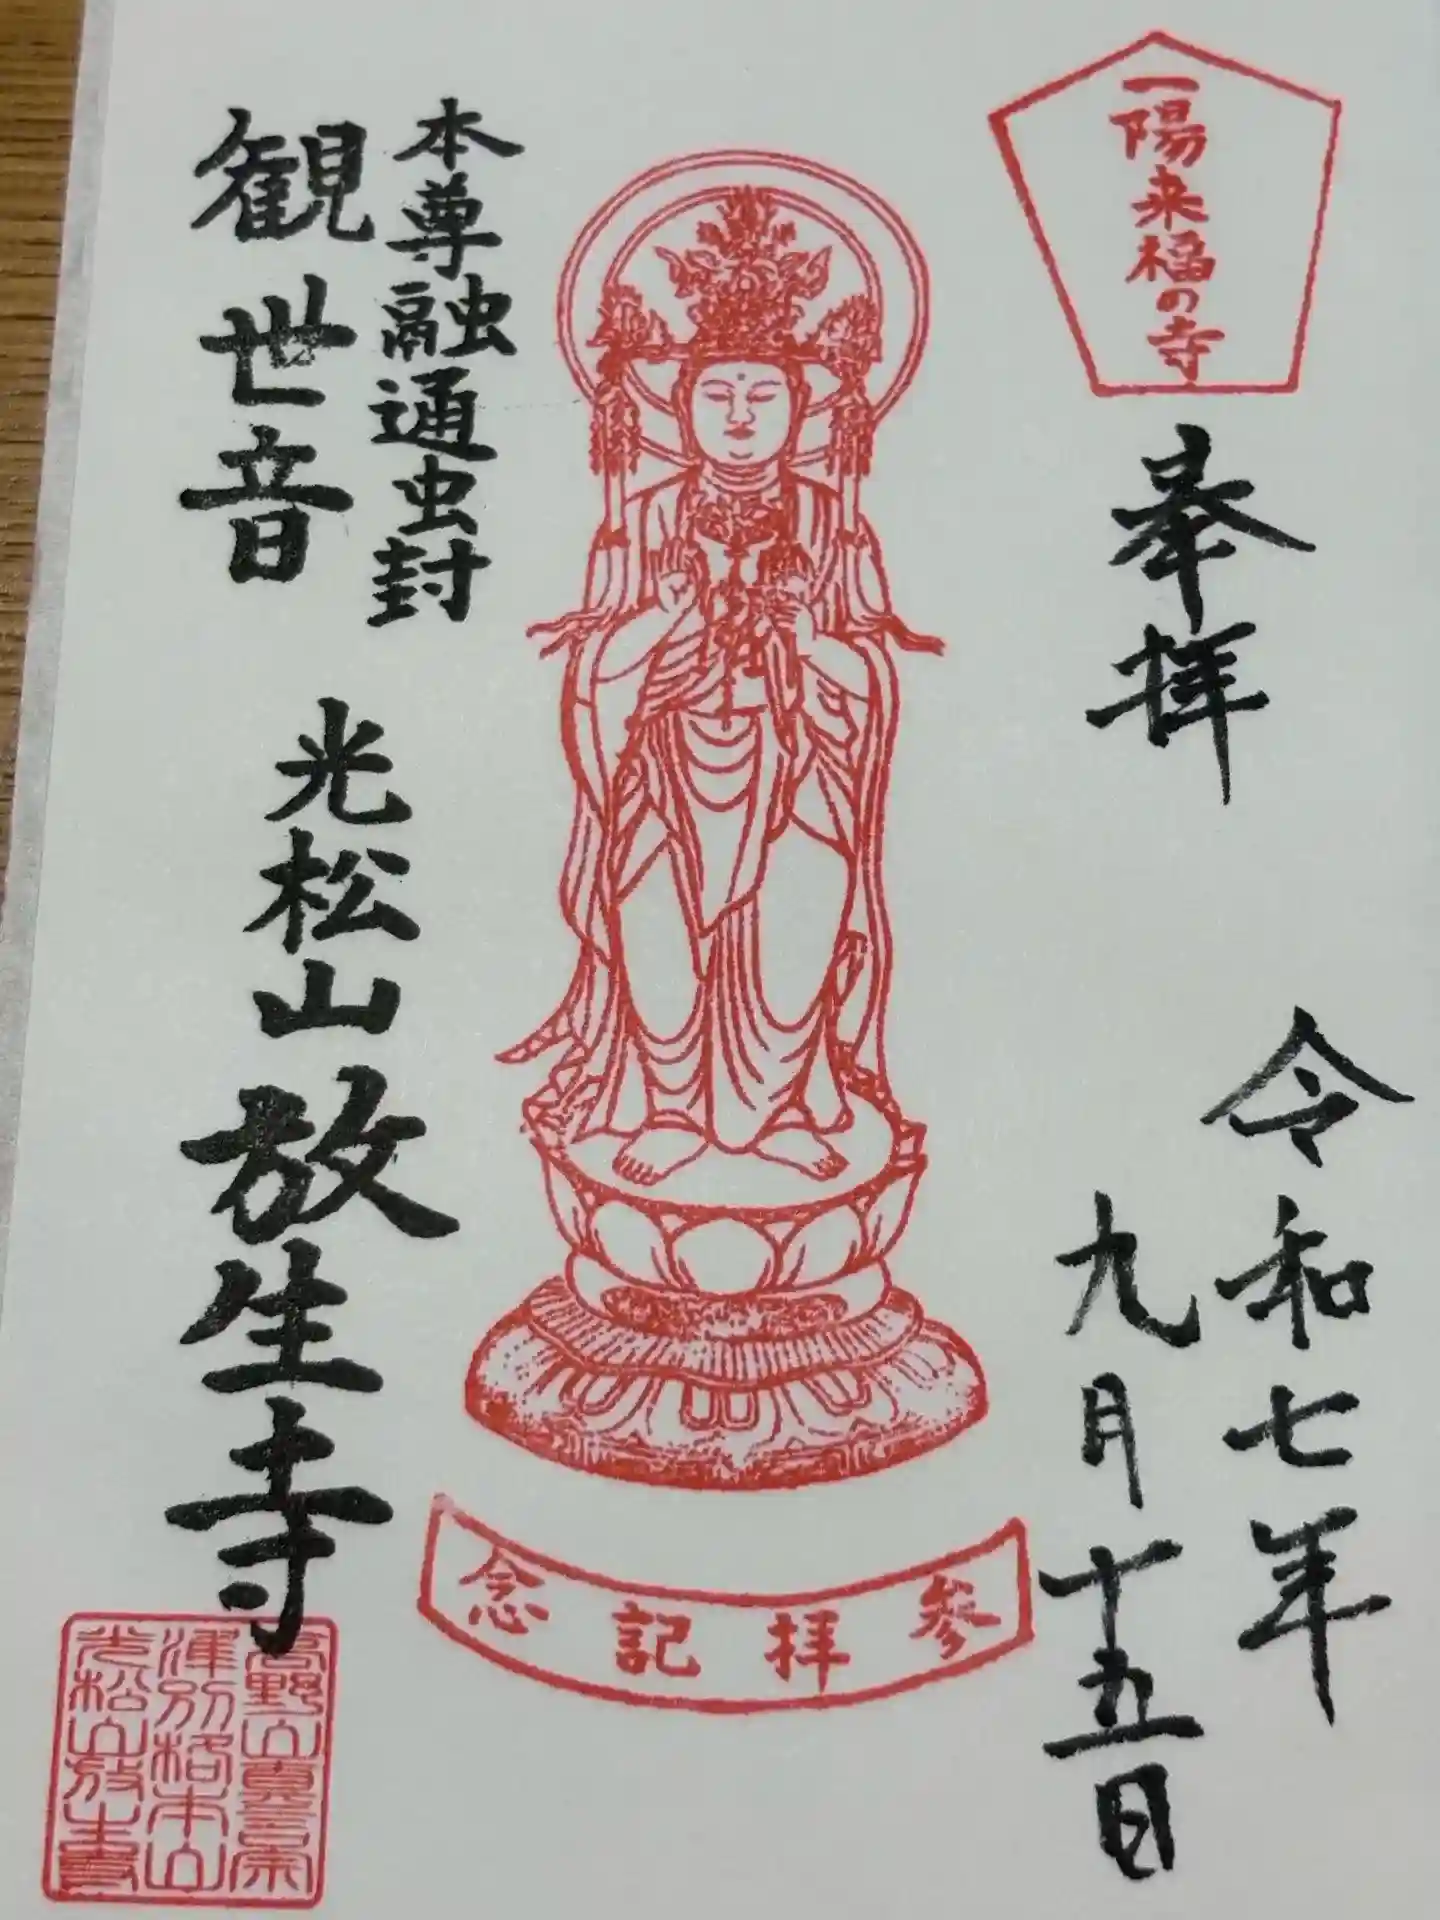 一陽来福の寺
奉拝
令和七年
九月十五日
参拝記念
本尊融通虫封
観世音
光松山放生寺
高野山真言宗
準別格本山
光松山放生寺